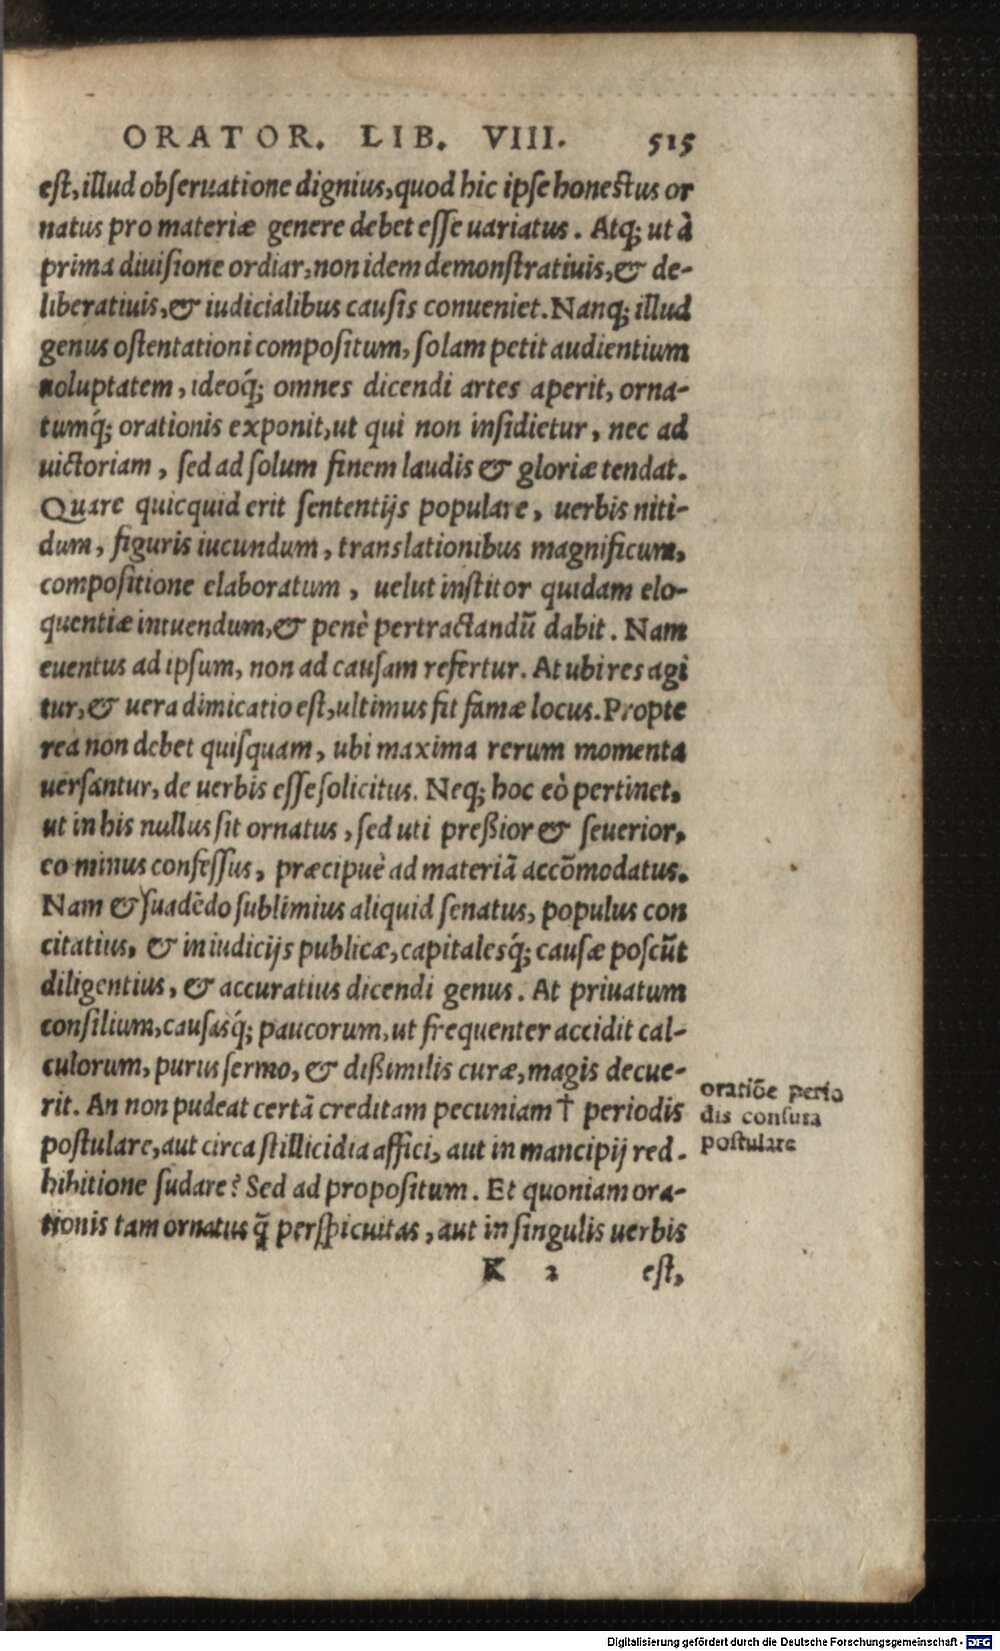 ORATOR. LIB. VIII. 515
est, illud obseruatione dignius, quod hic ipse honestus or
natus pro materiæ genere debet esse uariatus. Atq; ut à
prima diuisione ordiar, non idem demonstratiuis, & de-
liberatiuis, & iudicialibus causis conueniet. Nanq; illud
genus ostentationi compositum, solam petit audientium
uoluptatem, ideoq́; omnes dicendi artes aperit, orna-
tumq́; orationis exponit, ut qui non insidietur, nec ad
uictoriam, sed ad solum finem laudis & gloriæ tendat.
Quare quicquid erit sententijs populare, uerbis niti-
dum, figuris iucundum, translationibus magnificum,
compositione elaboratum, uelut institor quidam elo-
quentiæ intuendum, & penè pertractandũ dabit. Nam
euentus ad ipsum, non ad causam refertur. At ubi res agi
tur, & uera dimicatio est, ultimus fit famæ locus. Propte
rea non debet quisquam, ubi maxima rerum momenta
uersantur, de uerbis esse solicitus. Neq; hoc eò pertinet,
ut in his nullus sit ornatus, sed uti preßior & seuerior,
eo minus confessus, præcipuè ad materiã accõmodatus.
Nam & suadẽdo sublimius aliquid senatus, populus con
citatius, & in iudicijs publicæ, capitalesq́; causæ poscũt
diligentius, & accuratius dicendi genus. At priuatum
consilium, causasq́; paucorum, ut frequenter accidit cal-
culorum, purus sermo, & dißimilis curæ, magis decue-
rit. An non pudeat certã creditam pecuniam † periodis
postulare, aut circa stillicidia affici, aut in mancipij red-
hibitione sudare? Sed ad propositum. Et quoniam ora-
tionis tam ornatus q̃ perspicuitas, aut in singulis uerbis
K 2 est,
oratiõe perio
dis consuta
postulare
Digitalisierung gefördert durch die Deutsche Forschungsgemeinschaft - DFG